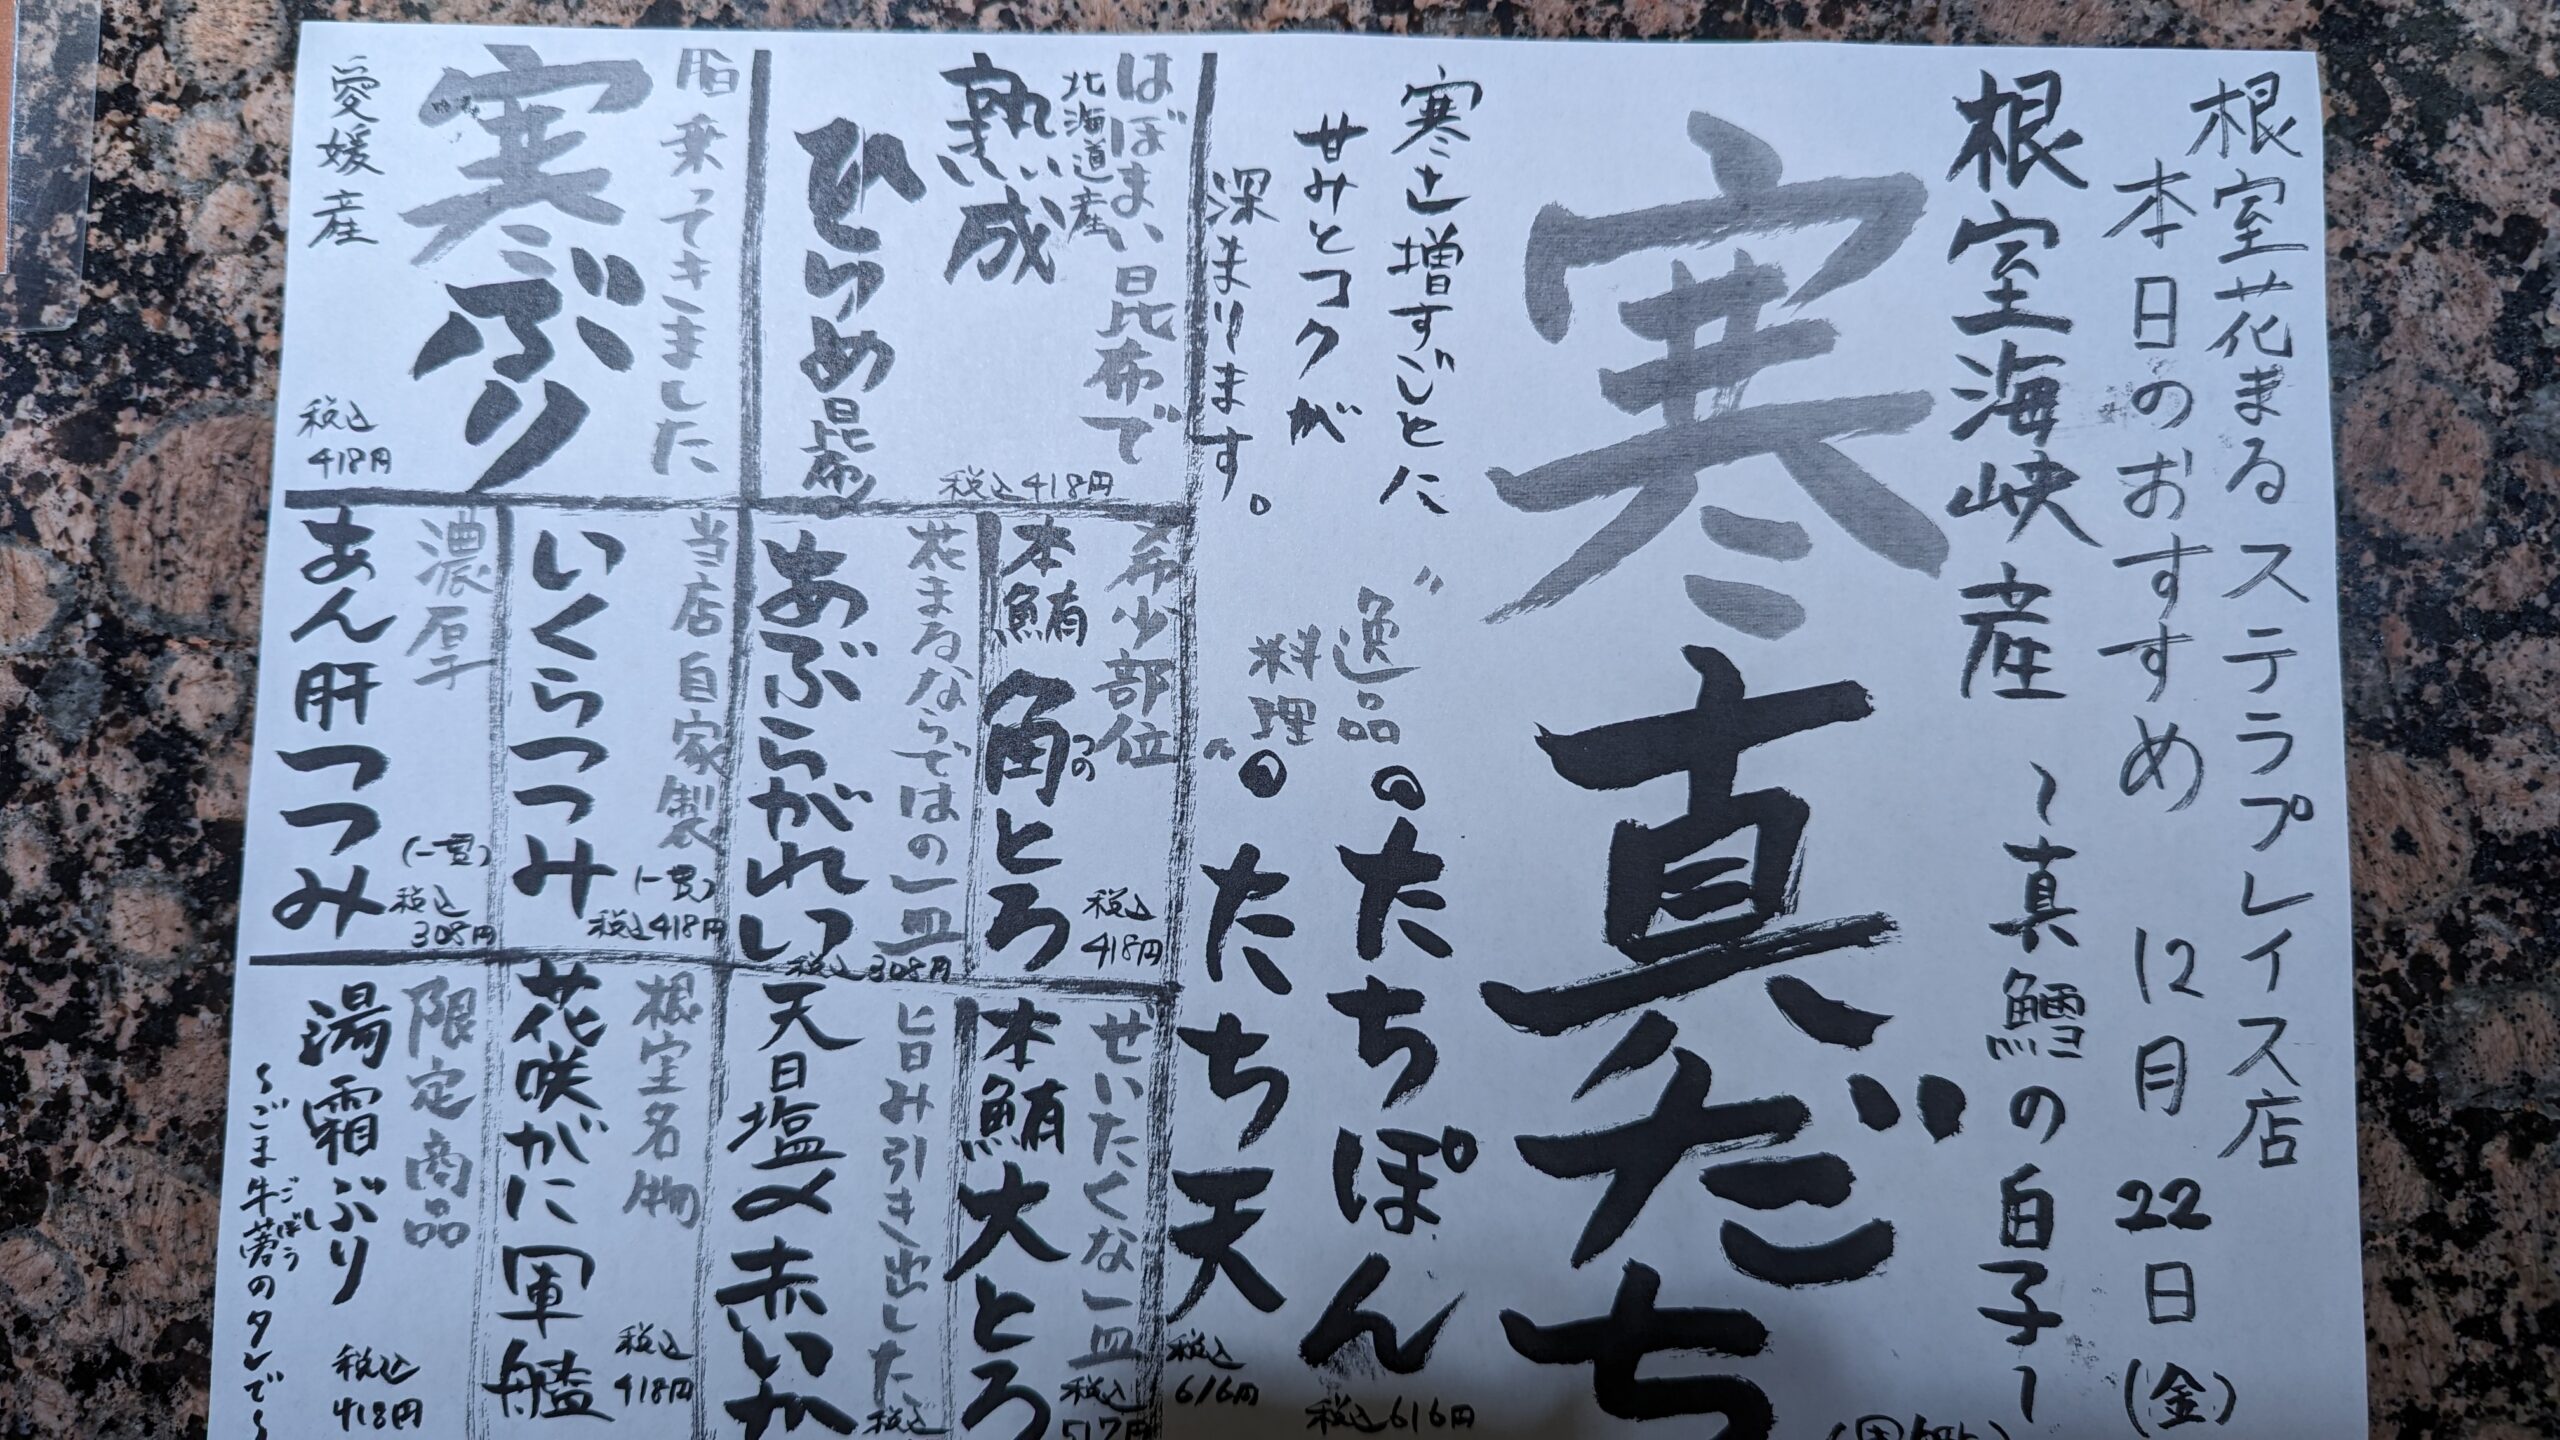 根室花まるステラプレイス店
本日のおすすめ 12月22日(金)
根室海峡産 ~真鱈の白子~
寒真だち
寒さ増すごとに
甘みとコクが
深まります。
"逸品の たちぽん
税込616円
料理"の たち天
税込616円
はぼまい昆布で
北海道産
熟成
ひらめ昆布〆
税込418円
脂乗ってきました
寒ぶり
愛媛産
税込418円
希少部位
本鮪角とろ
つの
税込418円
花まるならではの一皿
あぶらがれい
税込308円
当店自家製
(一貫)
いくらつつみ
税込418円
濃厚
(一貫)
あん肝つつみ
税込308円
ぜいたくな一皿
本鮪大とろ
税込517円
旨み引き出した
天日塩〆赤いか
税込
根室名物
花咲がに軍艦
税込418円
限定商品
湯霜ぶり
~ごま牛蒡のタレで~
ごぼう
税込418円